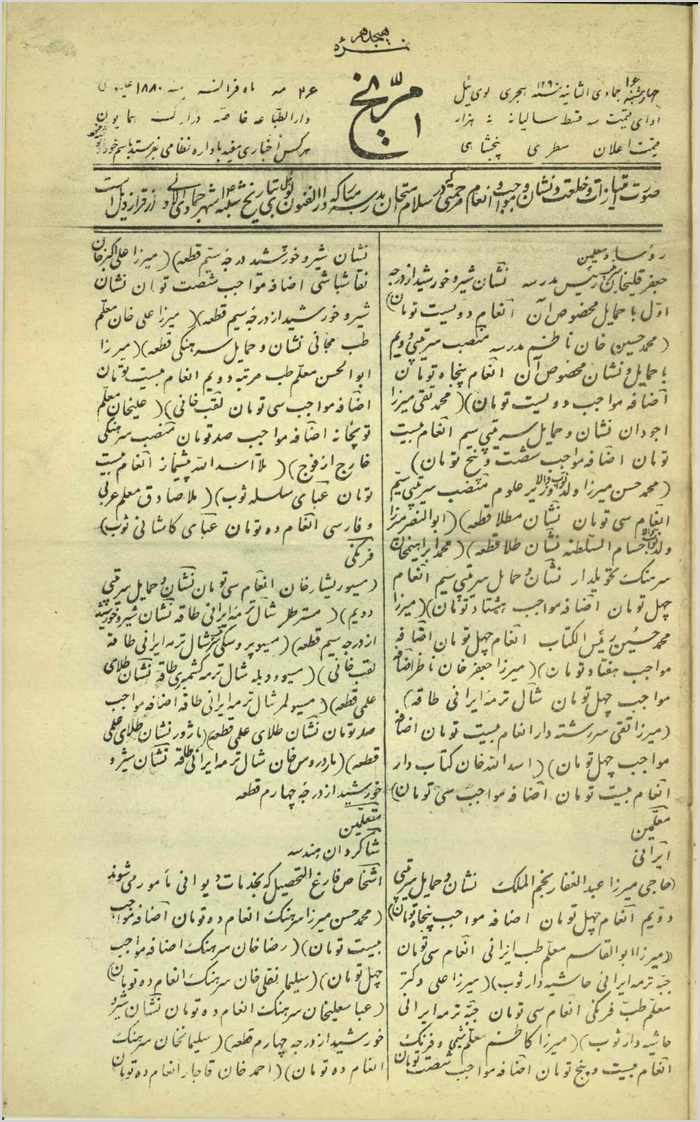 نمره هیجدهم
چهارشنبه ۱۶ جمادی الثانیه سنه ۱۲۹۷ هجری لوی ئیل
ادای قیمت سه قسط سالیانه نه هزار
قیمت اعلان سطری پنجشاهی
مریخ
۱
۲۶ مه ماه فرانسه سنه ۱۸۸۰ عیسوی
دارالطباعه خاصه در ارک همایون
هرکس اخباری مفید باداره نظامی بفرستد باسم خود
صورت امتیازات و خلعت و نشان و مواجب و انعام مرحمتی که در سلام امتحان بمدرسه مبارکه دارالفنون بتاریخ شنبه شهر جمادی الاولی از قرار ذیل است
رؤسا و معلمین
جعفرقلیخان رئیس مدرسه نشان شیر و خورشید از درجه
اول با حمایل مخصوص آن انعام دویست تومان)
(محمد حسین خان ناظم مدرسه منصب سرتیپی دویم
با حمایل و نشان مخصوص آن انعام پنجاه تومان
اضافه مواجب دویست تومان)(محمد تقی میرزا
اجودان نشان و حمایل سرتیپی سیم انعام بیست
تومان اضافه مواجب شصت و پنج تومان)
(محمد حسن میرزا ولد وزیر علوم منصب سرتیپی سیم
انعام سی تومان نشان مطلا قطعه)(ابوالنصر میرزا
ولد حسام السلطنه نشان طلا قطعه)(محمد ابراهیمخان
سرهنگ تحویلدار نشان و حمایل سرتیپی سیم انعام
چهل تومان اضافه مواجب هشتاد تومان)(میرزا
محمد حسین رئیس الکتاب انعام چهل تومان اضافه
مواجب هفتاد تومان)(میرزا جعفر خان ناظر اضافه
مواجب چهل تومان شال ترمه ایرانی طاقه)
(میرزا تقی سررشته دار انعام بیست تومان اضافه
مواجب چهل تومان)(اسدالله خان کتاب دار
انعام بیست تومان اضافه مواجب سی تومان)
معلمین
ایرانی
(حاجی میرزا عبدالغفار نجم الملک نشان و حمایل سرتیپی
دویم انعام چهل تومان اضافه مواجب پنجاه تومان)
(میرزا ابوالقاسم معلم طب ایرانی انعام سی تومان
جبه ترمه ایرانی حاشیه دار ثوب)(میرزا علی دکتر
معلم طب فرنگی انعام سی تومان جبه ترمه ایرانی
حاشیه دار ثوب)(میرزا کاظم معلم شیمی و فرنگ
انعام بیست و پنج تومان اضافه مواجب شصت تومان
نشان شیر و خورشید درجه سیم قطعه)(میرزا علی اکبر خان
نقاشباشی اضافه مواجب شصت تومان نشان
شیر و خورشید از درجه سیم قطعه)(میرزا علی خان معلم
طب مجانی نشان و حمایل سرهنگی قطعه)(میرزا
ابوالحسن معلم طب مرتبه دویم انعام بیست تومان
اضافه مواجب سی تومان لقب خانی)(علیخان معلم
توپخانه اضافه مواجب صد تومان منصب سرهنگی
خارج از فوج)(ملا اسدالله پیشنماز انعام بیست
تومان عبای سلسله ثوب)(ملا صادق معلم عربی
و فارسی انعام ده تومان عبای کاشانی ثوب)
فرنگی
(مسیو ریشار خان انعام سی تومان نشان و حمایل سرتیپی
دویم)(مستر طلر شال ترمه ایرانی طاقه نشان شیر و خورشید
از درجه سیم قطعه)(مسیو پروسکی شال ترمه ایرانی طاقه
لقب خانی)(مسیو ودیله شال ترمه کشمیری طاقه نشان طلای
علمی قطعه)(مسیو لمر شال ترمه ایرانی طاقه اضافه مواجب
صد تومان نشان طلای علمی قطعه)(باژور نشان طلای علمی
قطعه)(ماردروس خان شال ترمه ایرانی طاقه نشان شیر و
خورشید از درجه چهارم قطعه
متعلمین
شاگردان هندسه
اشخاص فارغ التحصیل که بخدمات دیوانی مأمور می شوند
(محمد حسن میرزا سرهنگ انعام ده تومان اضافه مواجب
بیست تومان)(رضا خان سرهنگ اضافه مواجب
چهل تومان)(سلیمانقلی خان سرهنگ انعام ده تومان)
(عباسقلیخان سرهنگ انعام ده تومان نشان شیر و
خورشید از درجه چهارم قطعه)(سلیمانخان سرهنگ
انعام ده تومان)(احمد خان قاجار انعام ده تومان